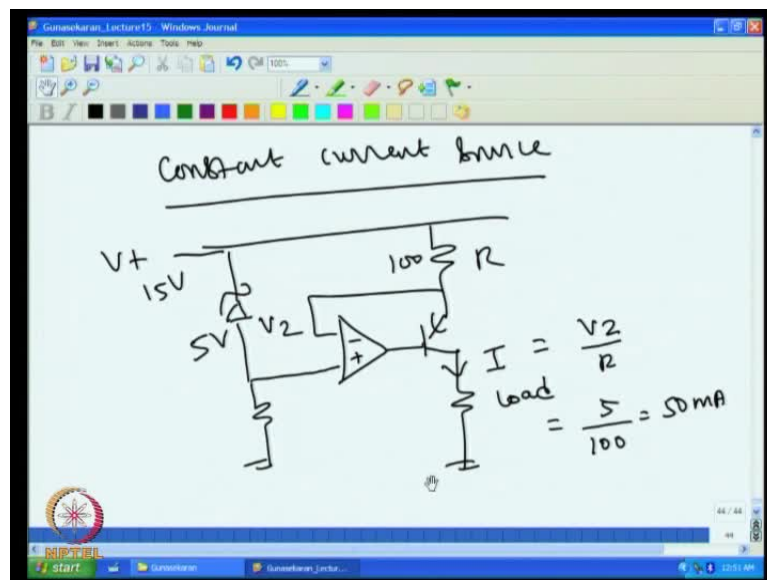 Gunasekaran_Lecture15 - Windows Journal
File Edit View Insert Actions Tools Help
100%
B I
Constant current Source
V+
15V
100
R
5V
VZ
-
+
I = VZ / R
Load
= 5 / 100 = 50 mA
44 / 44
44
NPTEL
start
Gunasekaran
Gunasekaran_Lectur...
12:51 AM